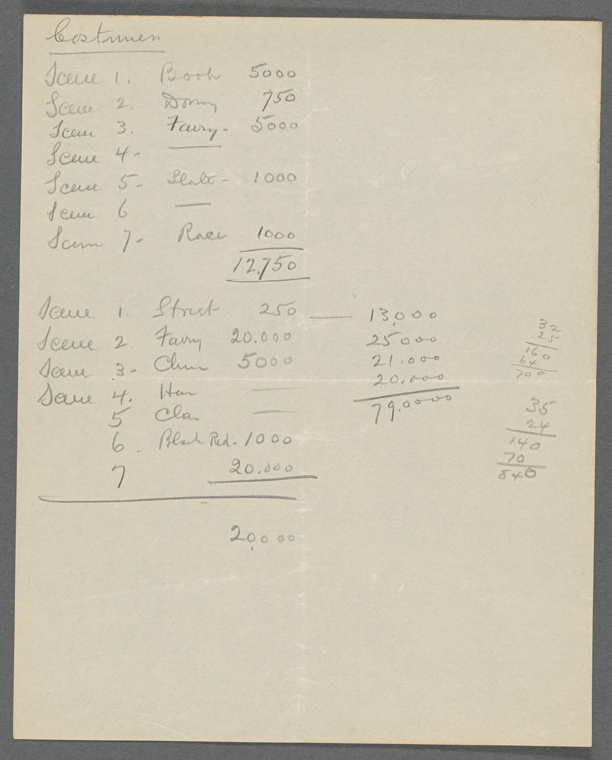 Costumes
Scene 1. Book 5000
Scene 2. 750
Scene 3. Fairy - 5000
Scene 4 -
Scene 5 - 1000
Scene 6
Scene 7 - Race 1000
12,750
Scene 1. Street 250 — 13,000
Scene 2. Fairy 20.000 25000
Scene 3 - 5000 21.000
Scene 4. 20.000
5 79.0000
6. Black Red. 1000
7 20.000
20,000
32
25
160
64
700
35
24
140
70
840